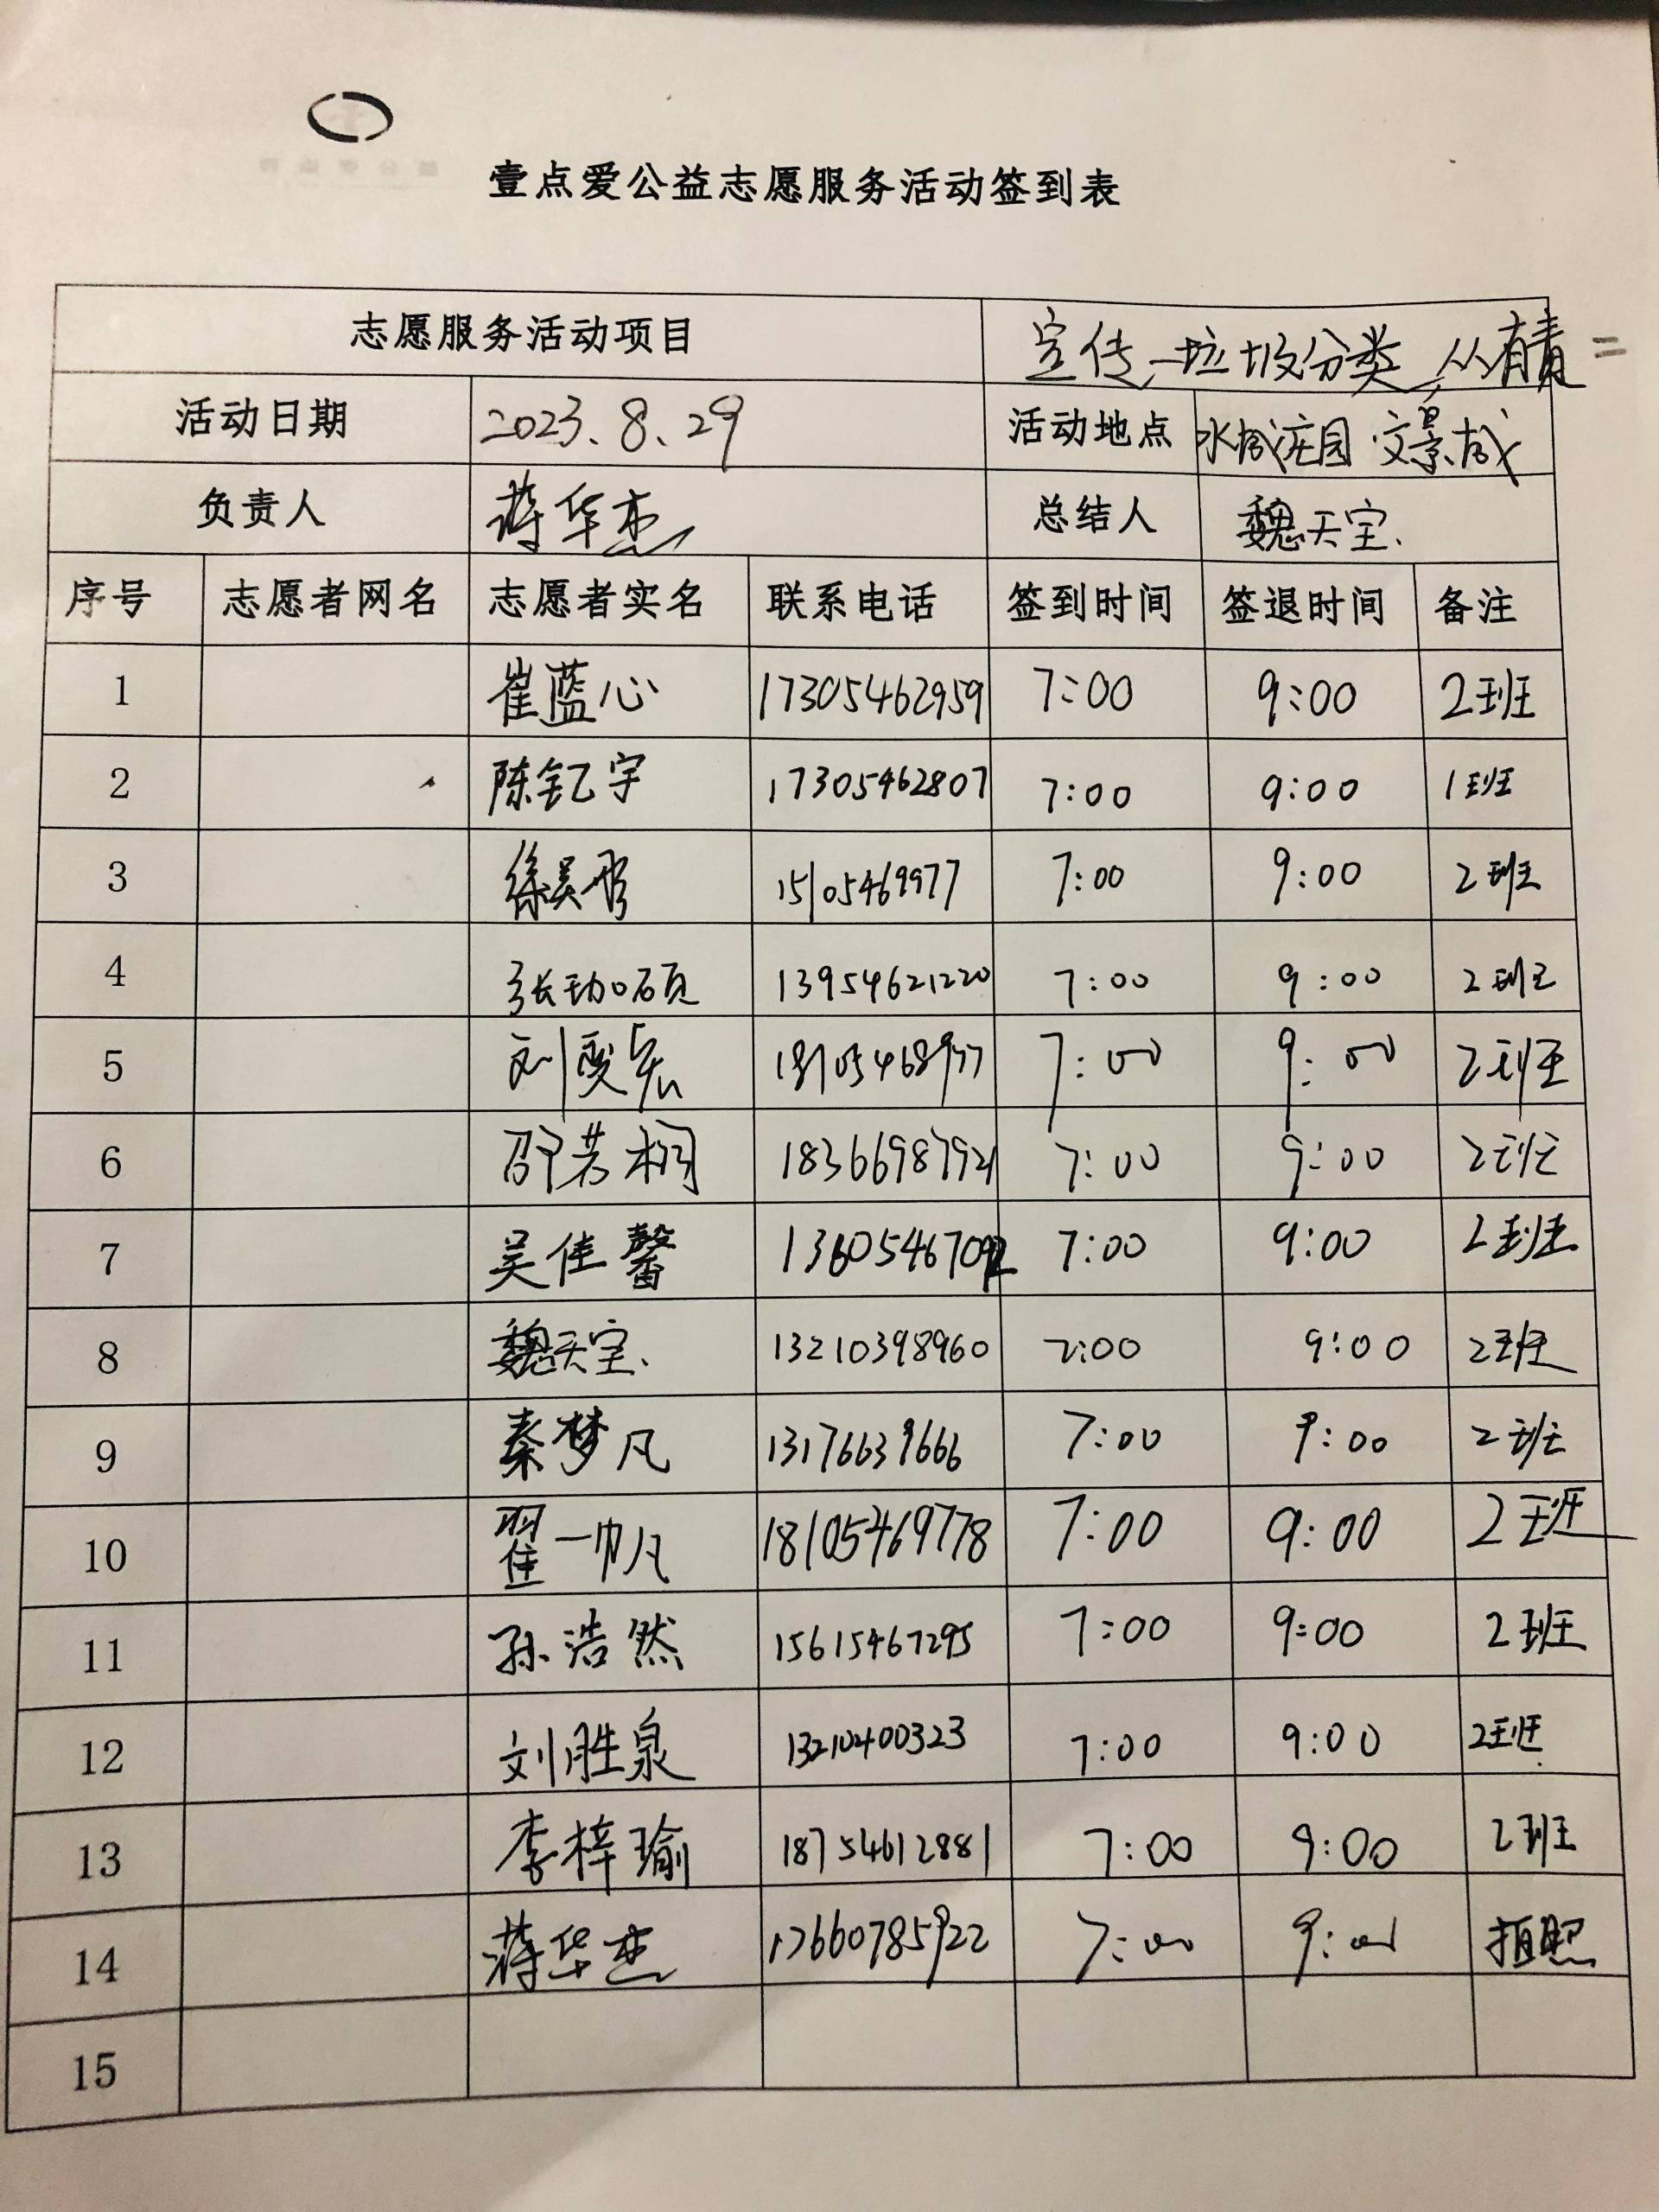 壹点爱公益志愿服务活动签到表
志愿服务活动项目 宣传垃圾分类,人人有责
活动日期 2023.8.29 活动地点 水城庄园 文景城
负责人 蒋华杰 总结人 魏天宝.
序号 志愿者网名 志愿者实名 联系电话 签到时间 签退时间 备注
1 崔蓝心 17305462959 7:00 9:00 2班
2 陈钇宇 17305462807 7:00 9:00 1班
3 15105469977 7:00 9:00 2班
4 13954621220 7:00 9:00 2班
5 7:00 9:00 2班
6 邵若栩 7:00 9:00 2班
7 吴佳馨 7:00 9:00 2班
8 魏天宝. 13210398960 7:00 9:00 2班
9 秦梦凡 13176639666 7:00 9:00 2班
10 翟一帆 18105469778 7:00 9:00 2班
11 孙浩然 15615467295 7:00 9:00 2班
12 刘胜泉 13210400323 7:00 9:00 2班
13 李梓瑜 18754612881 7:00 9:00 2班
14 蒋华杰 17660785922 7:00 9:00 拍照
15